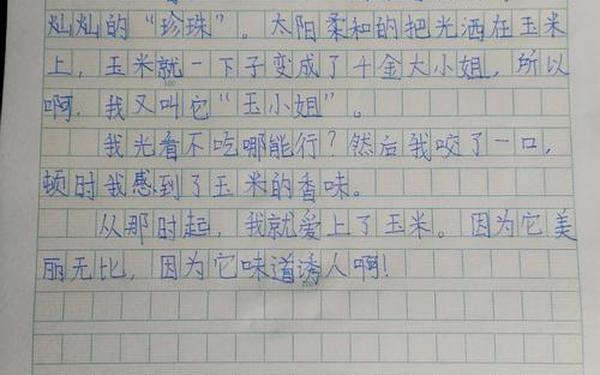 灿灿的“珍珠”。太阳柔和的把光洒在玉米
上，玉米就一下子变成了千金大小姐，所以
啊，我又叫它“玉小姐”。
我光看不吃哪能行？然后我咬了一口，
顿时我感到了玉米的香味。
从那时起，我就爱上了玉米。因为它美
丽无比，因为它味道诱人啊！